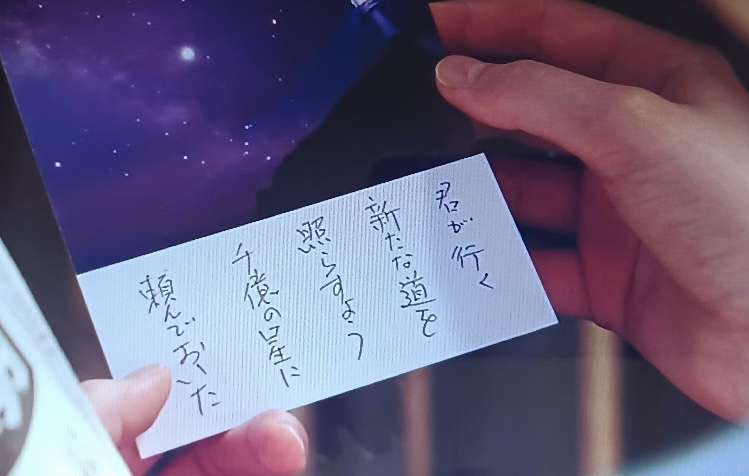 君が行く
新たな道を
照らすよう
千億の星に
頼んでおいた